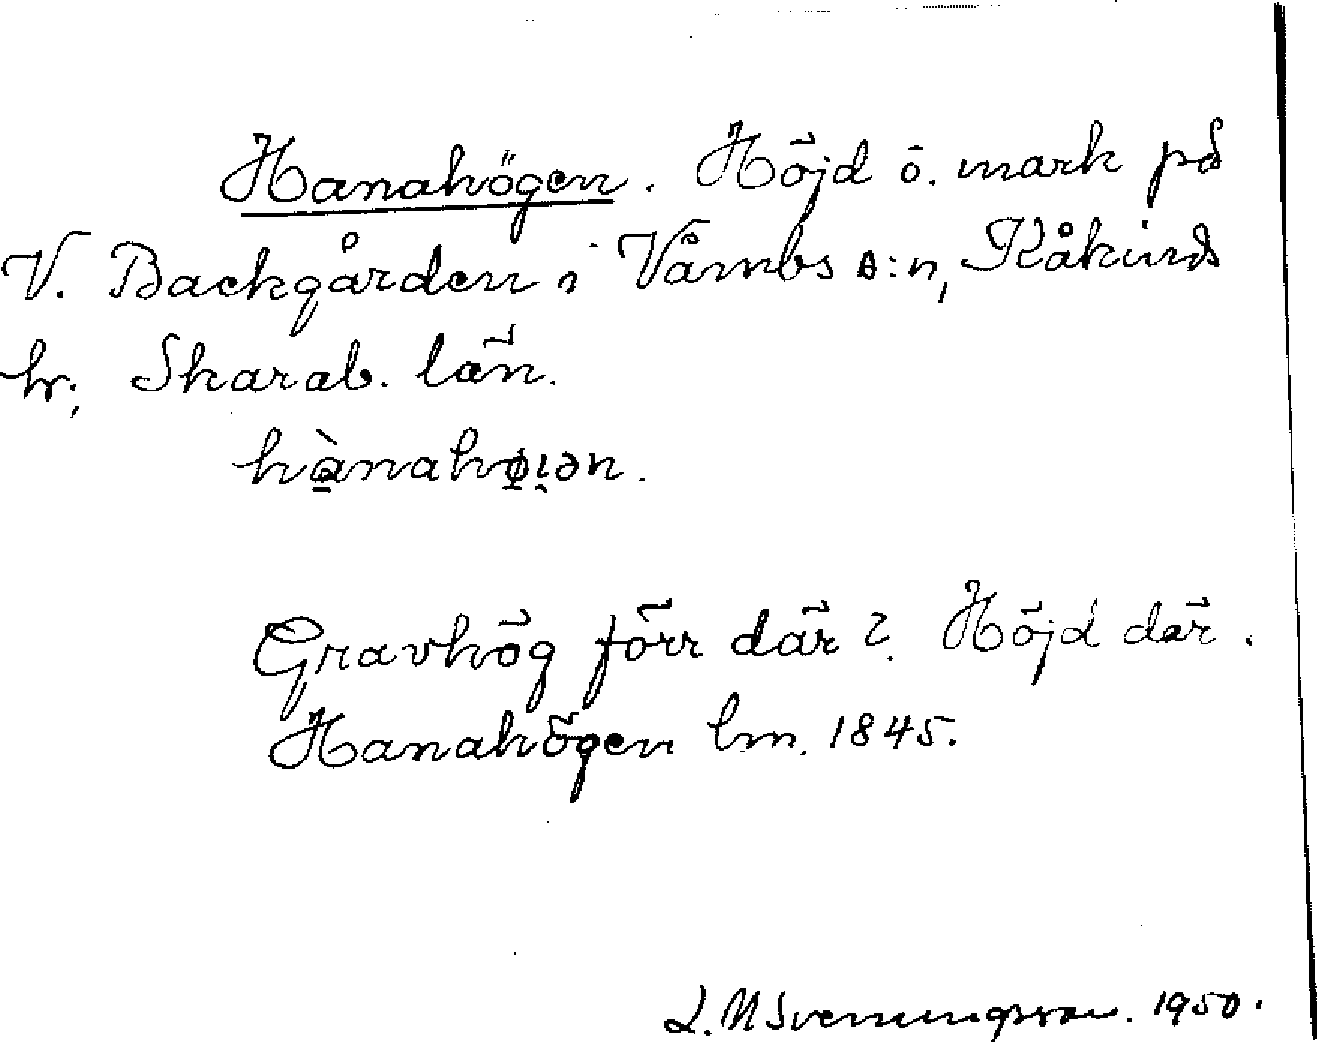 Hanahögen. Höjd ö. mark på
V. Backgården i Våmbs s:n, Kåkinds
hr; Skarab. län.
hànahøɩ̣ən.
Gravhög förr där? Höjd där.
Hanahögen lm. 1845.
L. M Svenungsson. 1950.